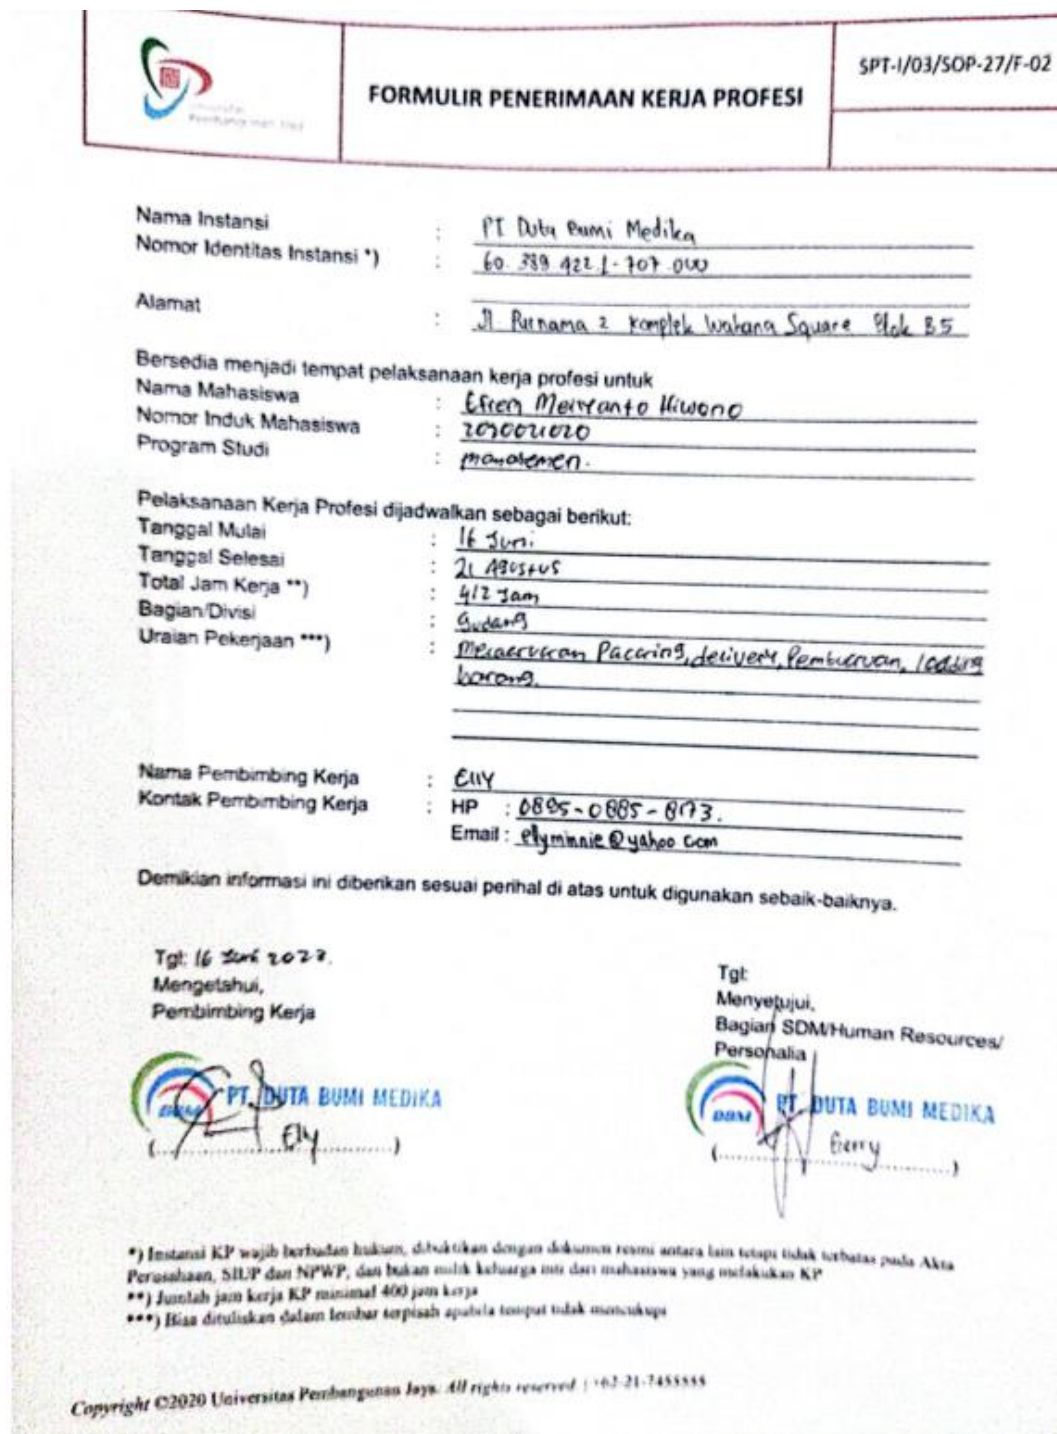 Universitas
Pembangunan Jaya
FORMULIR PENERIMAAN KERJA PROFESI
SPT-I/03/SOP-27/F-02
Nama Instansi : PT Duta Bumi Medika
Nomor Identitas Instansi *) : 60. 389 422.1-707.000
Alamat : Jl. Purnama 2 Komplek Wahana Square Blok B5
Bersedia menjadi tempat pelaksanaan kerja profesi untuk
Nama Mahasiswa : Efren Meiryanto Hiwono
Nomor Induk Mahasiswa :
Program Studi : manajemen.
Pelaksanaan Kerja Profesi dijadwalkan sebagai berikut:
Tanggal Mulai : 16 Juni
Tanggal Selesai : 21 Agustus
Total Jam Kerja **) : 412 Jam
Bagian/Divisi : Gudang
Uraian Pekerjaan ***) : Melakukan Packing, delivery, Pembukuan, loading
barang.
Nama Pembimbing Kerja : Elly
Kontak Pembimbing Kerja : HP : 0895-0885-8173.
Email : elyminnie@yahoo com
Demikian informasi ini diberikan sesuai perihal di atas untuk digunakan sebaik-baiknya.
Tgl: 16 Juni 2023.
Mengetahui,
Pembimbing Kerja
DBM PT. DUTA BUMI MEDIKA
(........Elly........)
Tgl:
Menyetujui,
Bagian SDM/Human Resources/
Personalia
DBM PT. DUTA BUMI MEDIKA
(........Gerry........)
*) Instansi KP wajib berbadan hukum, dibuktikan dengan dokumen resmi antara lain tetapi tidak terbatas pada Akta
Perusahaan, SIUP dan NPWP, dan bukan milik keluarga inti dari mahasiswa yang melakukan KP
**) Jumlah jam kerja KP minimal 400 jam kerja
***) Bisa dituliskan dalam lembar terpisah apabila tempat tidak mencukupi
Copyright ©2020 Universitas Pembangunan Jaya. All rights reserved. | +62-21-7455555